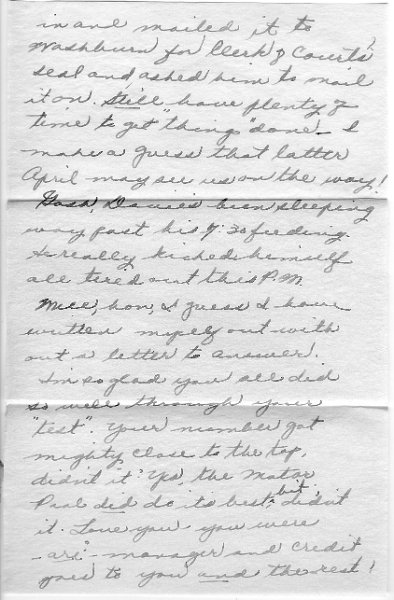 in and mailed it to
Washburn for Clerk of Courts'
seal and asked him to mail
it on. Still have plenty of
time to "get things" done - I
make a guess that latter
April may see us on the way!
Gosh, Davie's been sleeping
way past his 7:30 feeding.
He really kicked himself
all tired out this P.M.
Well, hon, I guess I have
written myself out with
out a letter to answer.
I'm so glad you all did
so well through your
"test". Your number got
mighty close to the top,
didn't it? Yes, the Motor
Pool did do its best, but didn't
it. Love you - you were
- are - manager and credit
goes to you and the rest!